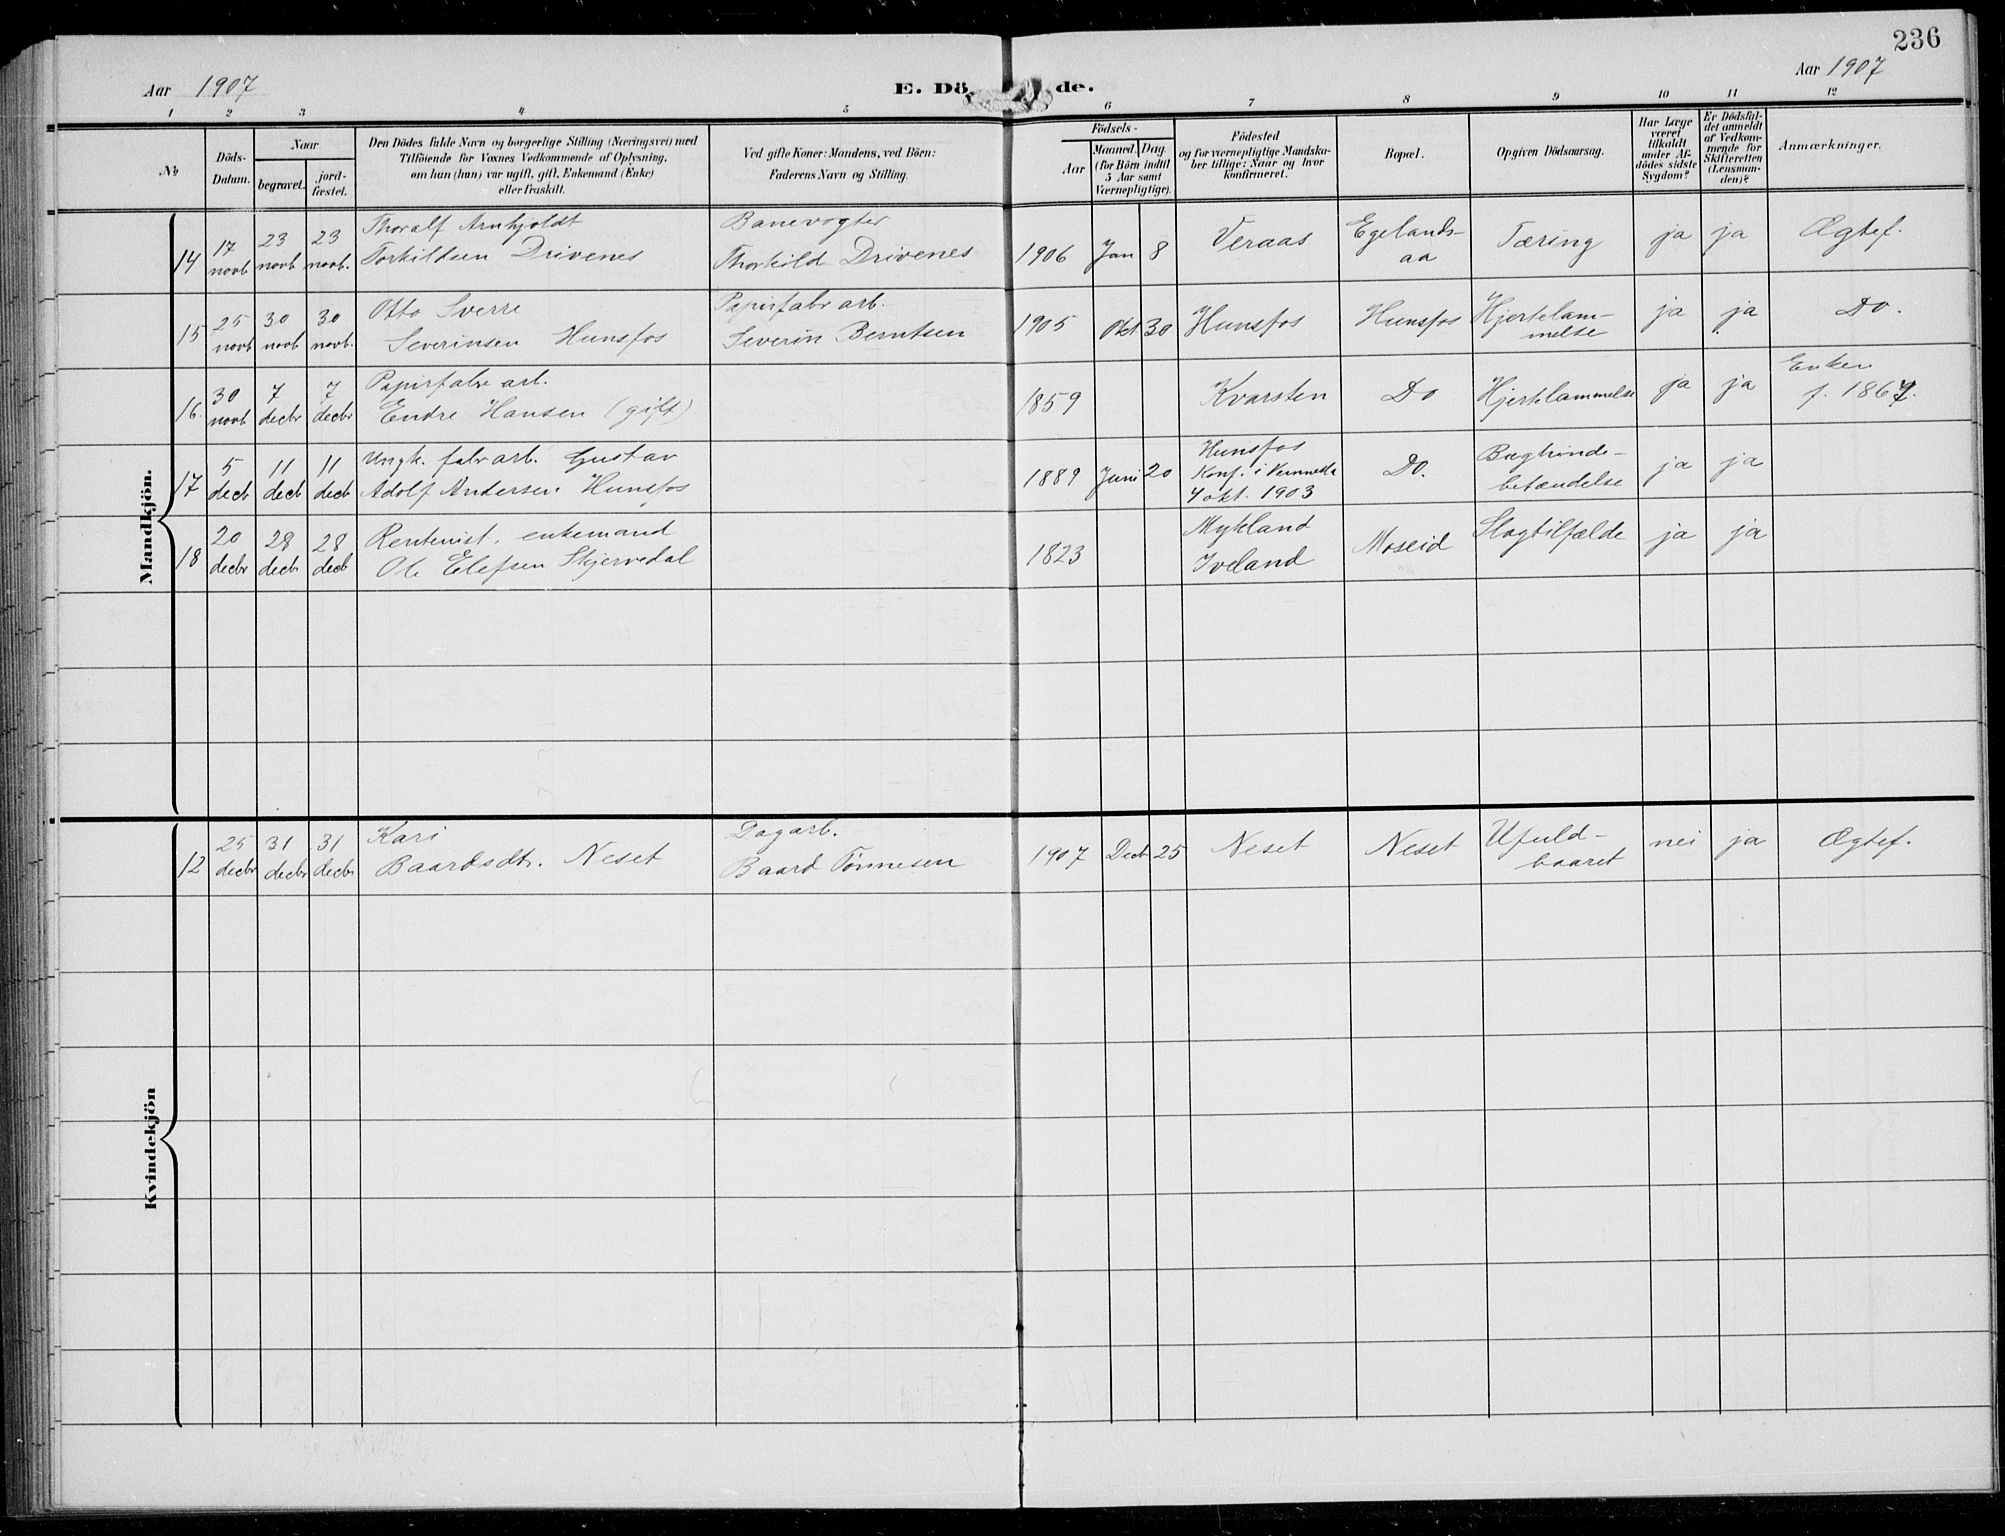 236
Aar 1907
E. Dö
de.
Aar 1907
1 2 3 4 5 6 7 8 9 10 11 12
No
Döds-
Datum.
Naar
begravet.
jord-
fæstet.
Den Dödes fulde Navn og borgerlige Stilling (Næringsvei) med
Tilföiende for Voxnes Vedkommende af Oplysning,
om han (hun) var ugift, gift, Enkemand (Enke)
eller fraskilt.
Ved gifte Koner: Mandens, ved Börn:
Faderens Navn og Stilling.
Födsels-
Aar
Maaned. Dag.
(for Börn indtil
5 Aar samt
Værnepligtige).
Födested
og for værnepligtige Mandska-
ber tillige: Naar og hvor
konfirmeret.
Bopæl.
Opgiven Dödsaarsag.
Har Læge
været
tilkaldt
under Af-
dödes sidste
Sygdom?
Er Dödsfal-
det anmeldt
af Vedkom-
mende for
Skifteretten
(Lensman-
den)?
Anmærkninger.
Mandkjön.
14 17 novb 23 novb 23 novb.
Thoralf Arnhjoldt
Torkildsen Drivenes
Banevogter
Thorkild Drivenes
1906 Jan 8
Veraas
Egelands-
aa
Tæring
ja ja
Ægtef.
15 25 novb 30 novb 30 novb.
Otto Sverre
Severinsen Hunsfos
Papirfabr arb.
Severin Berntsen
1905 Okt. 30
Hunsfos
Hunsfos
Hjertelam-
melse
ja ja
Do.
16. 30 novb 7 decbr 7 decbr
Papirfabr arb.
Endre Hansen (gift)
1859
Kvarsten
Do
Hjertelammelse
ja ja
Enken
f. 1867.
17 5 decb 11 decb 11 decb
Ungk. fabr arb. Gustav
Adolf Andersen Hunsfos
1889 Juni 20
Hunsfos
Konf. i Vennesla
4 okt. 1903
Do.
Bughinde-
betændelse
ja ja
18 20 decbr 28 decb 28 decb
Rentenist. enkemand
Ole Elefsen Skjervedal
1823
Mykland
Iveland
Moseid
Slagtilfælde
ja ja
Kvindekjön
12 25 decbr 31 decbr 31 decbr
Kari
Baardsdtr. Neset
Dagarb.
Baard Tønnesen
1907 Decb 25
Neset
Neset
Ufuld-
baaret
nei ja
Ægtef.